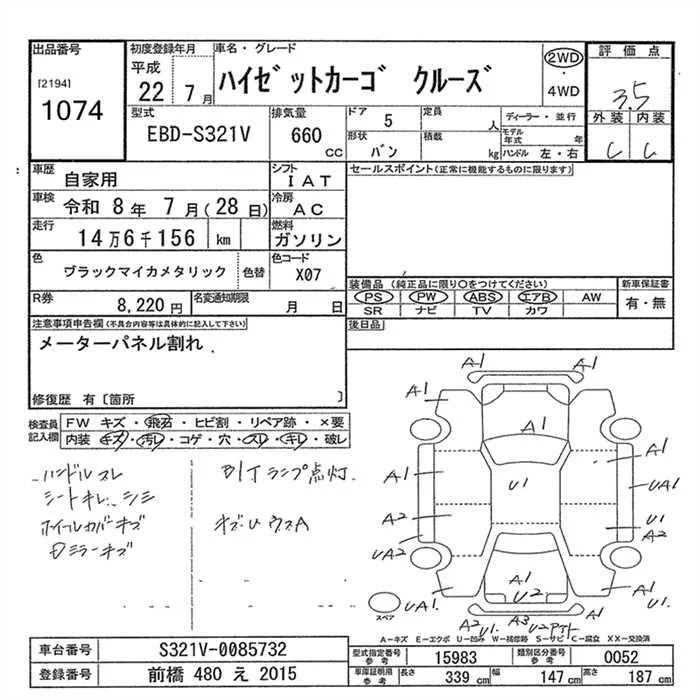 出品番号
[2194]
1074
初度登録年月
平成
22 7月
車名・グレード
ハイゼットカーゴ クルーズ
2WD
・
4WD
評価点
3.5
外装 内装
C C
型式
EBD-S321V
排気量
660
CC
ドア 5
形状 バン
定員 人
積載 kg
ディーラー・並行
モデル年式 年
ハンドル 左・右
車歴 自家用
シフト IAT
車検 令和 8年 7月(28日)
冷房 AC
走行 14万6千156 km
燃料 ガソリン
色 ブラックマイカメタリック 色替
色コード X07
R券 8,220円
名変通知期限 月 日
セールスポイント(正常に機能するものに限ります)
装備品 (純正品に限り○をつけてください)
PS PW ABS エアB AW
SR ナビ TV カワ
新車保証書
有・無
後日品
注意事項申告欄(不具合内容等は具体的に記入して下さい)
メーターパネル割れ
修復歴 有〔箇所 〕
検査員記入欄
FW キズ・飛石・ヒビ割・リペア跡・×要
内装 キズ・汚レ・コゲ・穴・スレ・キレ・破レ
ハンドルスレ
シートキレ、シミ
ホイールカバーキズ
ミラーキズ
ランプ点灯
キズU ウスA
A1 A1
A1 A1
A1
A1 U1 UA1
A2 U1
A2
UA2
A1 A1
U2
UA1 UA1
A2 U1 A3 U2
スペア
A-キズ E-エクボ U-凹み W-補修跡 S-サビ C-腐食 XX-交換済
車台番号 S321V-0085732
登録番号 前橋 480 え 2015
型式指定番号 参考 15983
類別区分番号 参考 0052
車庫証明用 参考 長さ 339 cm 幅 147 cm 高さ 187 cm